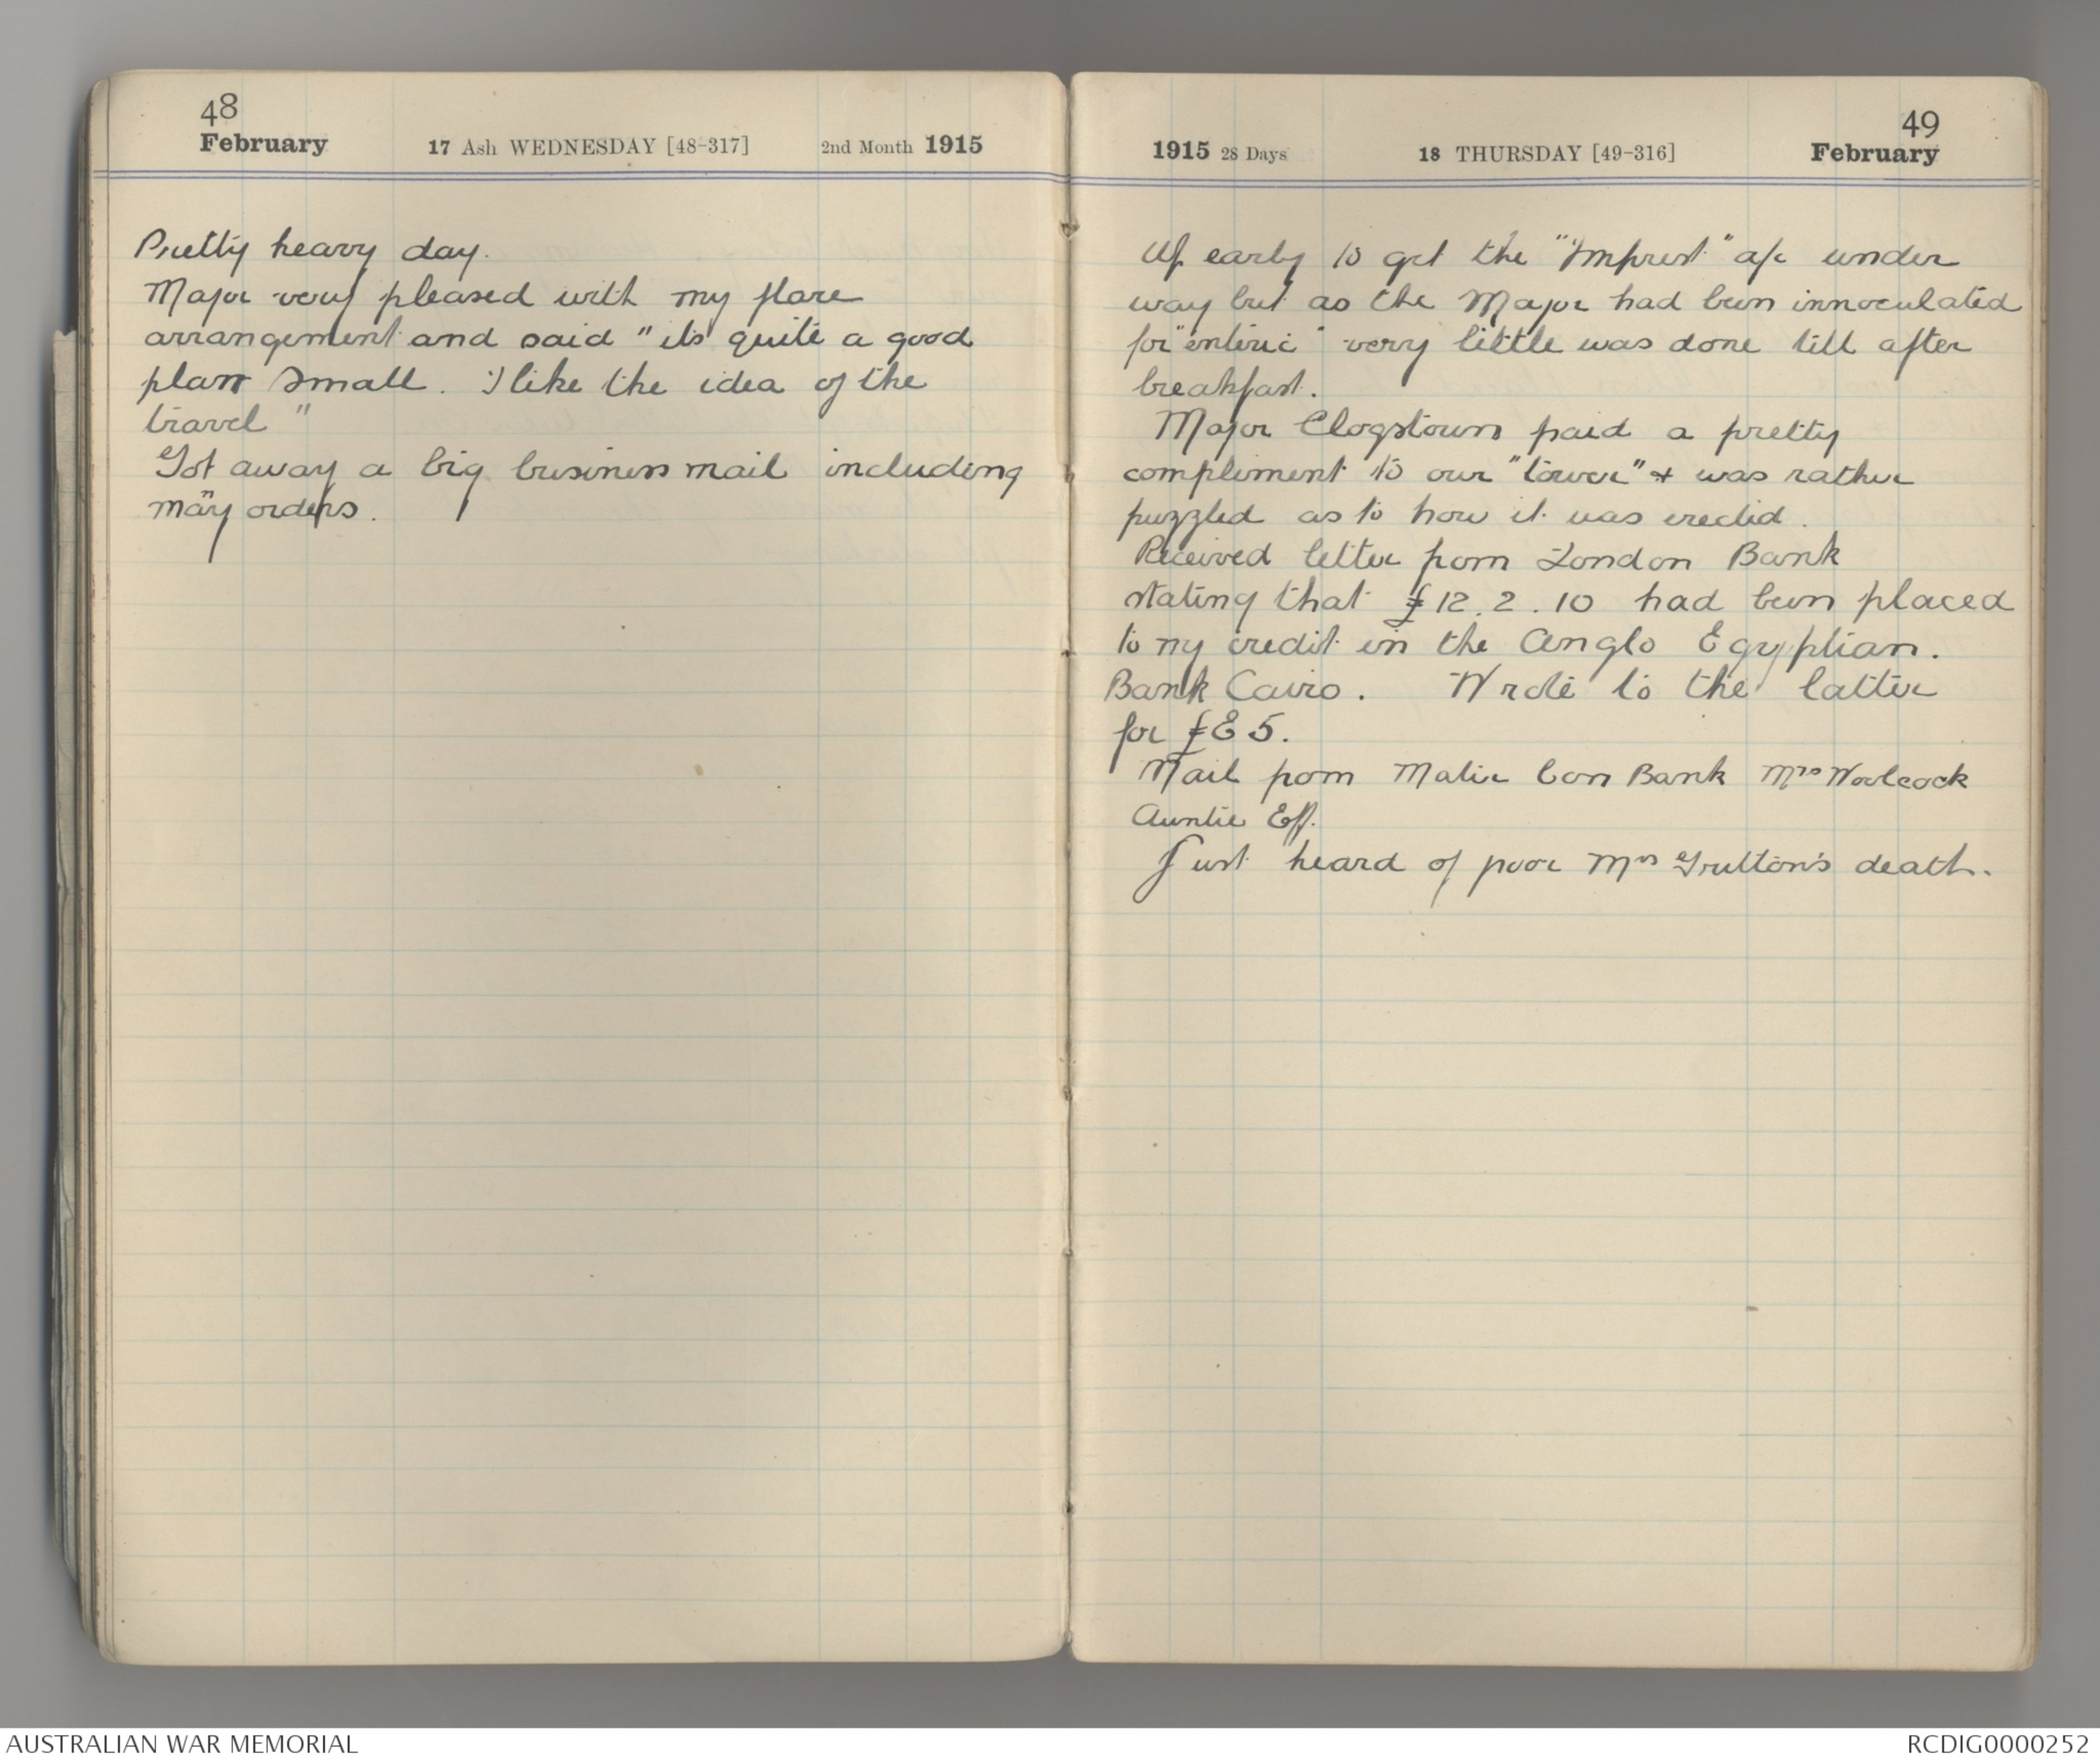 48
February 17 Ash WEDNESDAY [48-317] 2nd Month 1915
Pretty heavy day.
Major very pleased with my flare
arrangement and said "its quite a good
plan Small. I like the idea of the
travel"
Got away a big business mail including
many orders.
49
1915 28 Days 18 THURSDAY [49-316] February
Up early to get the "Imprest" a/c under
way but as the Major had been innoculated
for "enteric" very little was done till after
breakfast.
Major Clogstoun paid a pretty
compliment to our "tower" & was rather
puzzled as to how it was erected.
Received letter from London Bank
stating that £12.2.10 had been placed
to my credit in the Anglo Egyptian.
Bank Cairo. Wrote to the latter
for £E5.
Mail from Mater Com Bank Mrs Woolcock
Auntie Eff.
Just heard of poor Mrs death.
AUSTRALIAN WAR MEMORIAL
RCDIG0000252